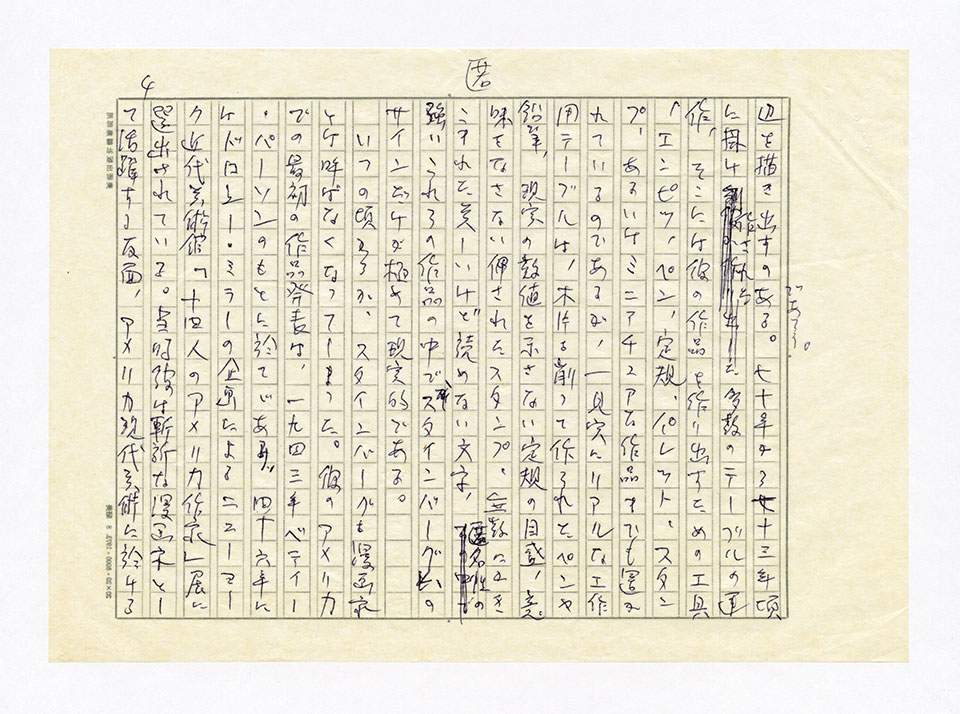 匿
4
辺を描き出すのある。七十年から七十三年頃
であろう。
に掛け制作された多数のテーブルの連
作、そこには彼の作品を作り出すための工具
、エンピツ、ペン、定規、パレット、スタン
プ、あるいはミニアチュアな作品までも置か
れているのであるが、一見実にリアルな工作
用テーブルは、木片を削って作られたペンや
鉛筆、現実の数値を示さない定規の目盛、意
味をなさない押されたスタンプ、無数にかき
こまれた美しいけど読めない文字、匿名性の
強いこれらの作品の中で、スタインバーグの
サインだけが極めて現実的である。
いつの頃からか、スタインバーグを漫画家
とは呼ばなくなってしまった。彼のアメリカ
での最初の作品発表は、一九四三年ベティー
・パーソンのもとに於てであり、四十六年に
はドロシー・ミラーの企画によるニューヨー
ク近代美術館「十四人のアメリカ作家」展に
選出されている。当時彼は斬新な漫画家とし
て活躍する反面、アメリカ現代美術に於ける